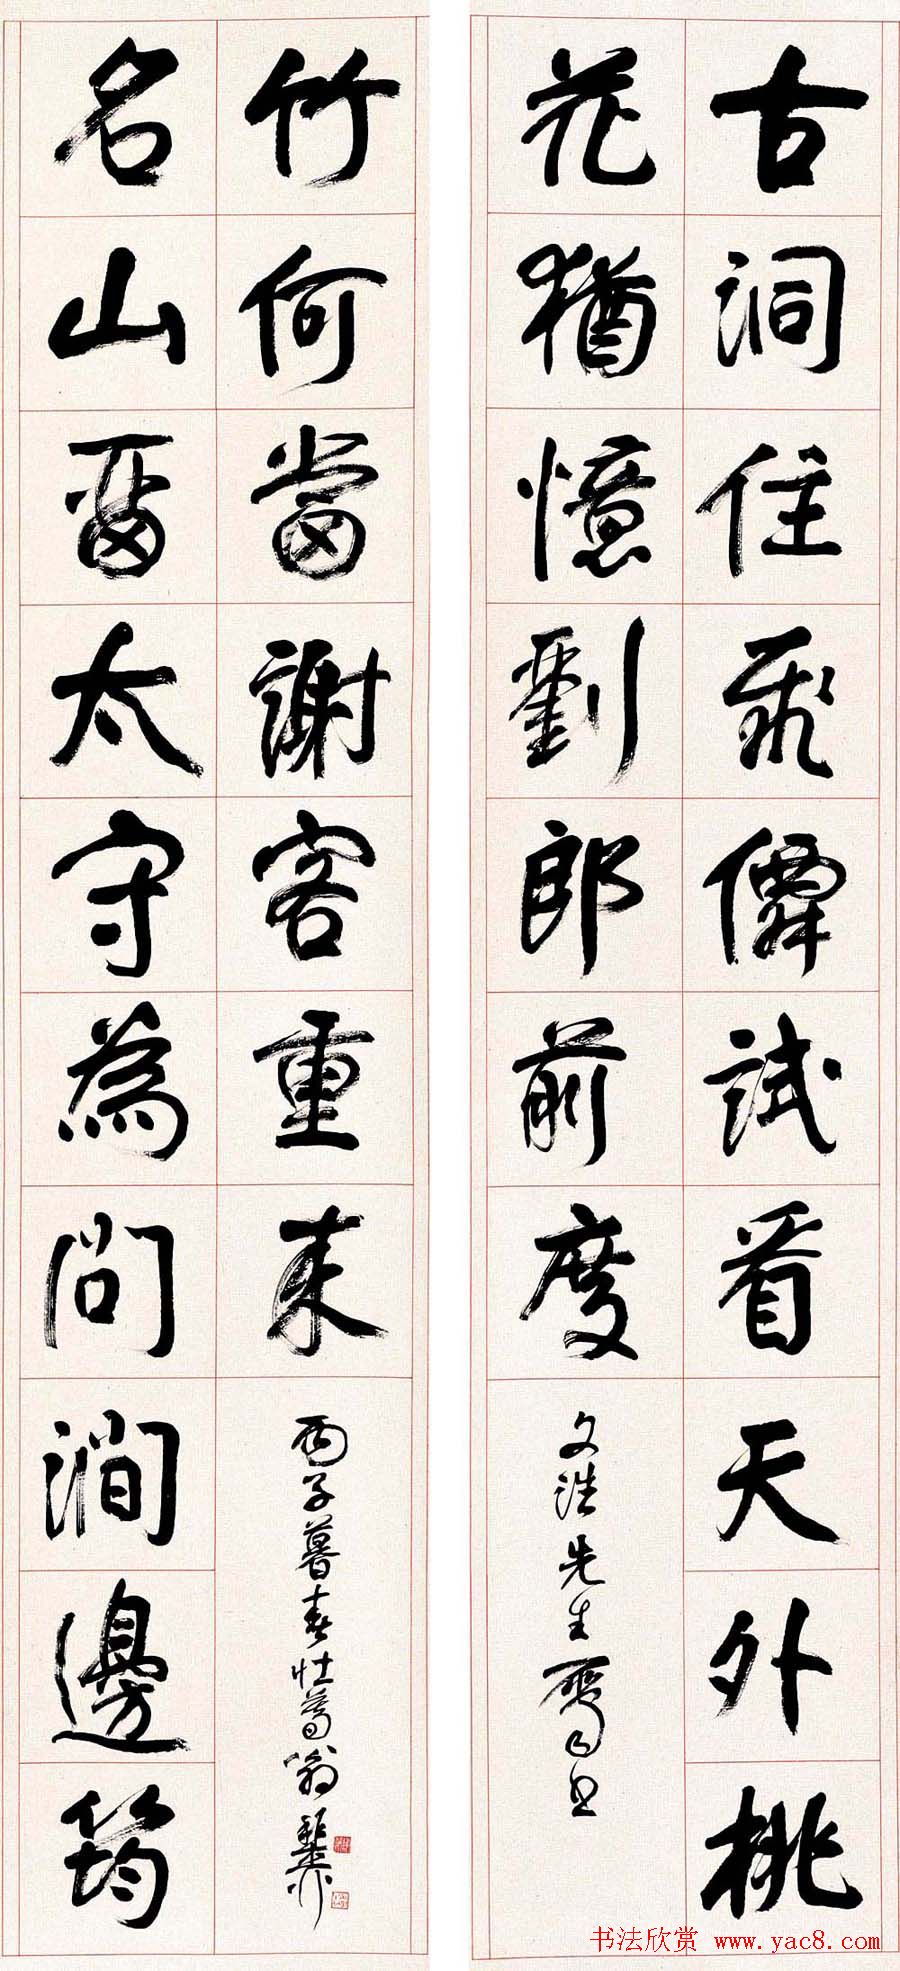 古洞住飛僊試看天外桃
花猶憶劉郎前度
文浩先生屬書
名山留太守為問澗邊筠
竹何當謝客重来
丙子暮春壮暮翁稚柳
书法欣赏 www.yac8.com